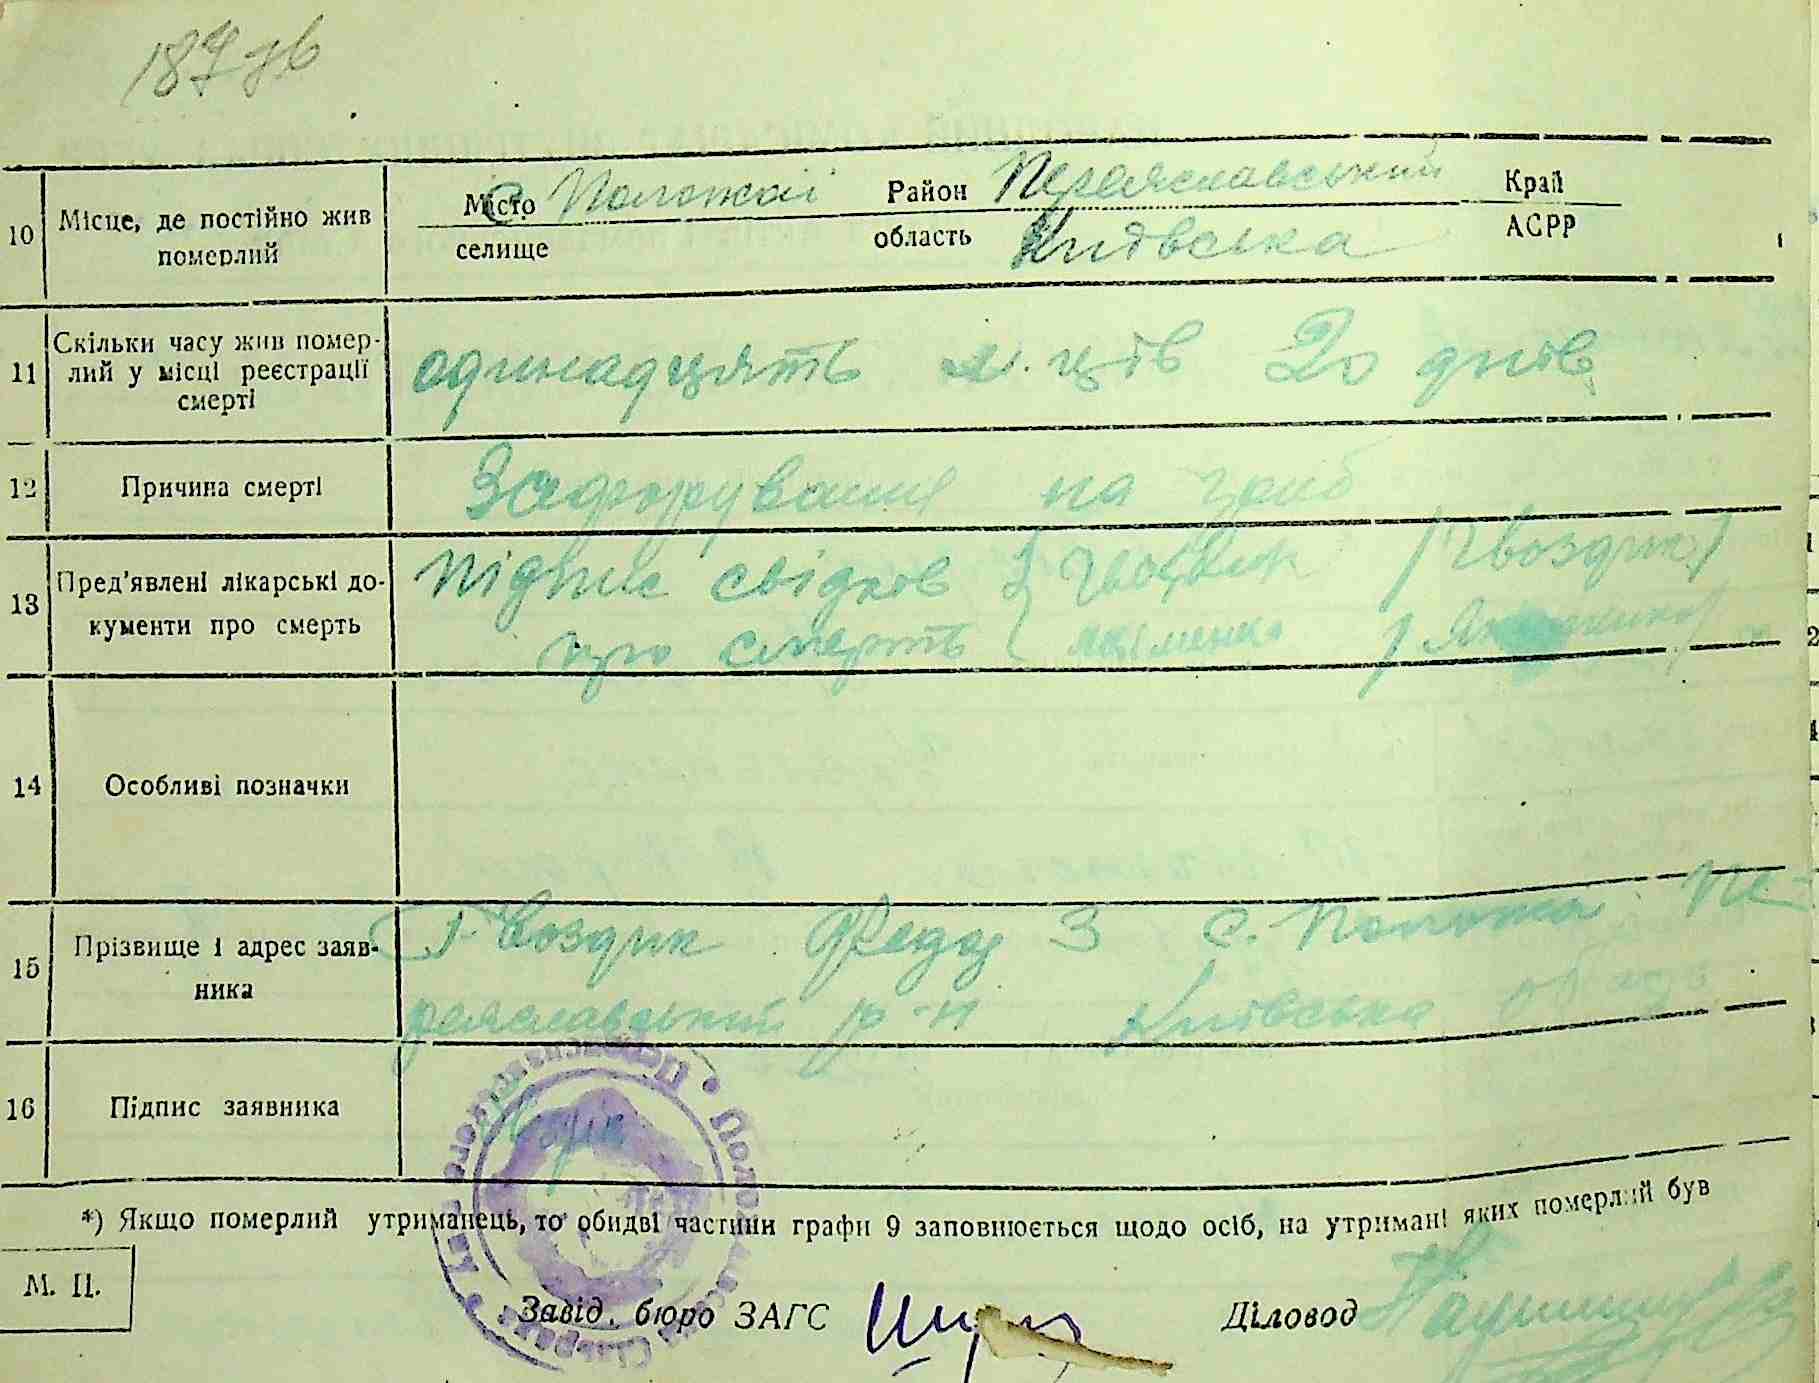 187 зв
10 Місце, де постійно жив померлий
Місто с. Положаї Район Переяславський Край
селище область Київська АСРР
11 Скільки часу жив помер-
лий у місці реєстрації
смерті
одинадцять м.ців 20 днів
12 Причина смерті
Захорування на грип
13 Пред'явлені лікарські до-
кументи про смерть
Підпис свідків Гвоздик /Гвоздик/
про смерть Якіменко
14 Особливі позначки
15 Прізвище і адрес заяв-
ника
Гвоздик Федір З с. Положаї Пе-
реяславський р-н Київська обл
16 Підпис заявника
*) Якщо померлий утриманець, то обидві частини графи 9 заповнюється щодо осіб, на утримані яких померлий був
М. П.
Завід. бюро ЗАГС
Діловод